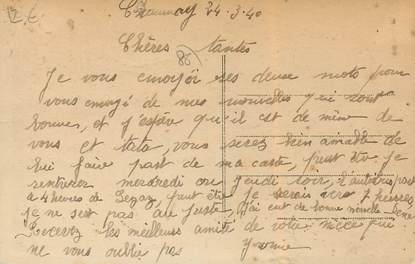 12 €
Chaunay 24-3-40
Chères tantes
(86)
Je vous envoyér ses deuse mots pour
vous envoyé de mes nouvelles qui sont
bonnes, et j'espére qu'il est de même de
vous et tata, vous serez bien aimable de
lui faire part de ma carte, peut être je
rentrerer mercredi ou jeudi soir, l'autobus part
a 4 heures de Sezay, peut être je serais vers 7 heures,
je ne sert pas au juste, j'ai eut de bonne nouvelle
Recevez les meilleurs amité de votre niéce qui
ne vous oublie pas Yvonne